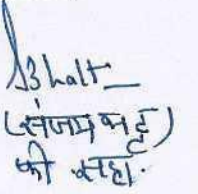 SBhatt
(संजय भट्ट)
की सहा.